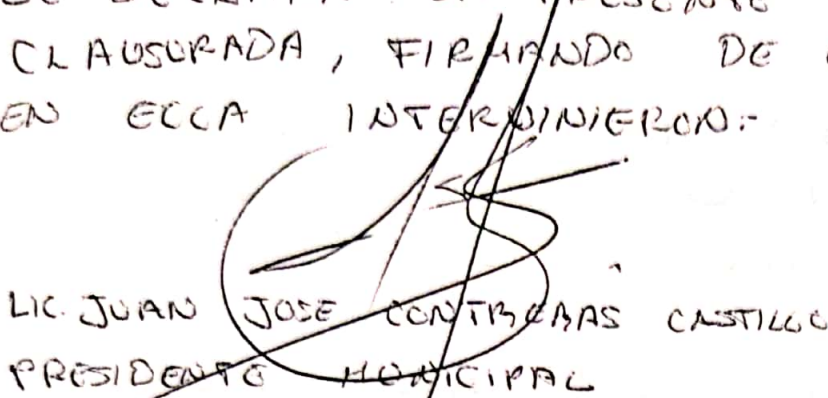 CLAUSURADA, FIRMANDO DE
EN ELLA INTERVINIERON.-
LIC. JUAN JOSE CONTRERAS CASTILLO
PRESIDENTE MUNICIPAL